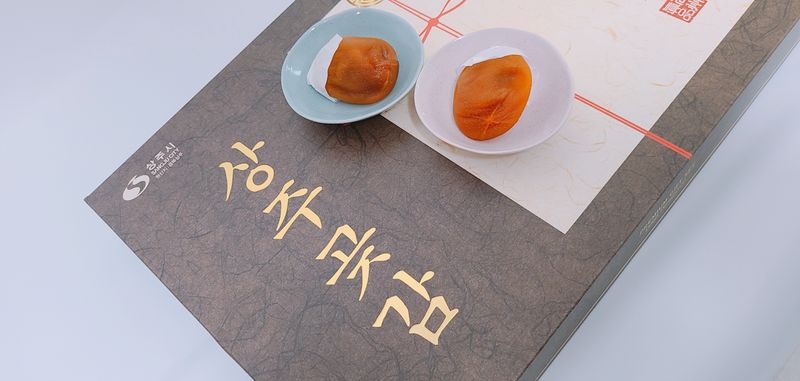 상주시
SANGJU CITY
상주곶감